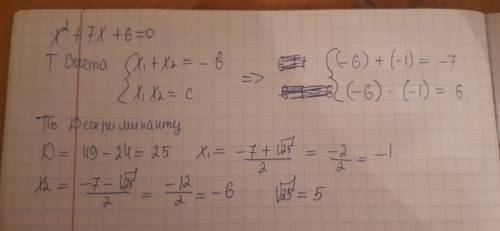 x² + 7x + 6 = 0
Т Виета { x₁ + x₂ = -b => { (-6) + (-1) = -7
{ x₁ x₂ = c { (-6) · (-1) = 6
По Дескриминанту
D = 49 - 24 = 25 x₁ = (-7 + √25)/2 = -2/2 = -1
x₂ = (-7 - √25)/2 = -12/2 = -6 √25 = 5